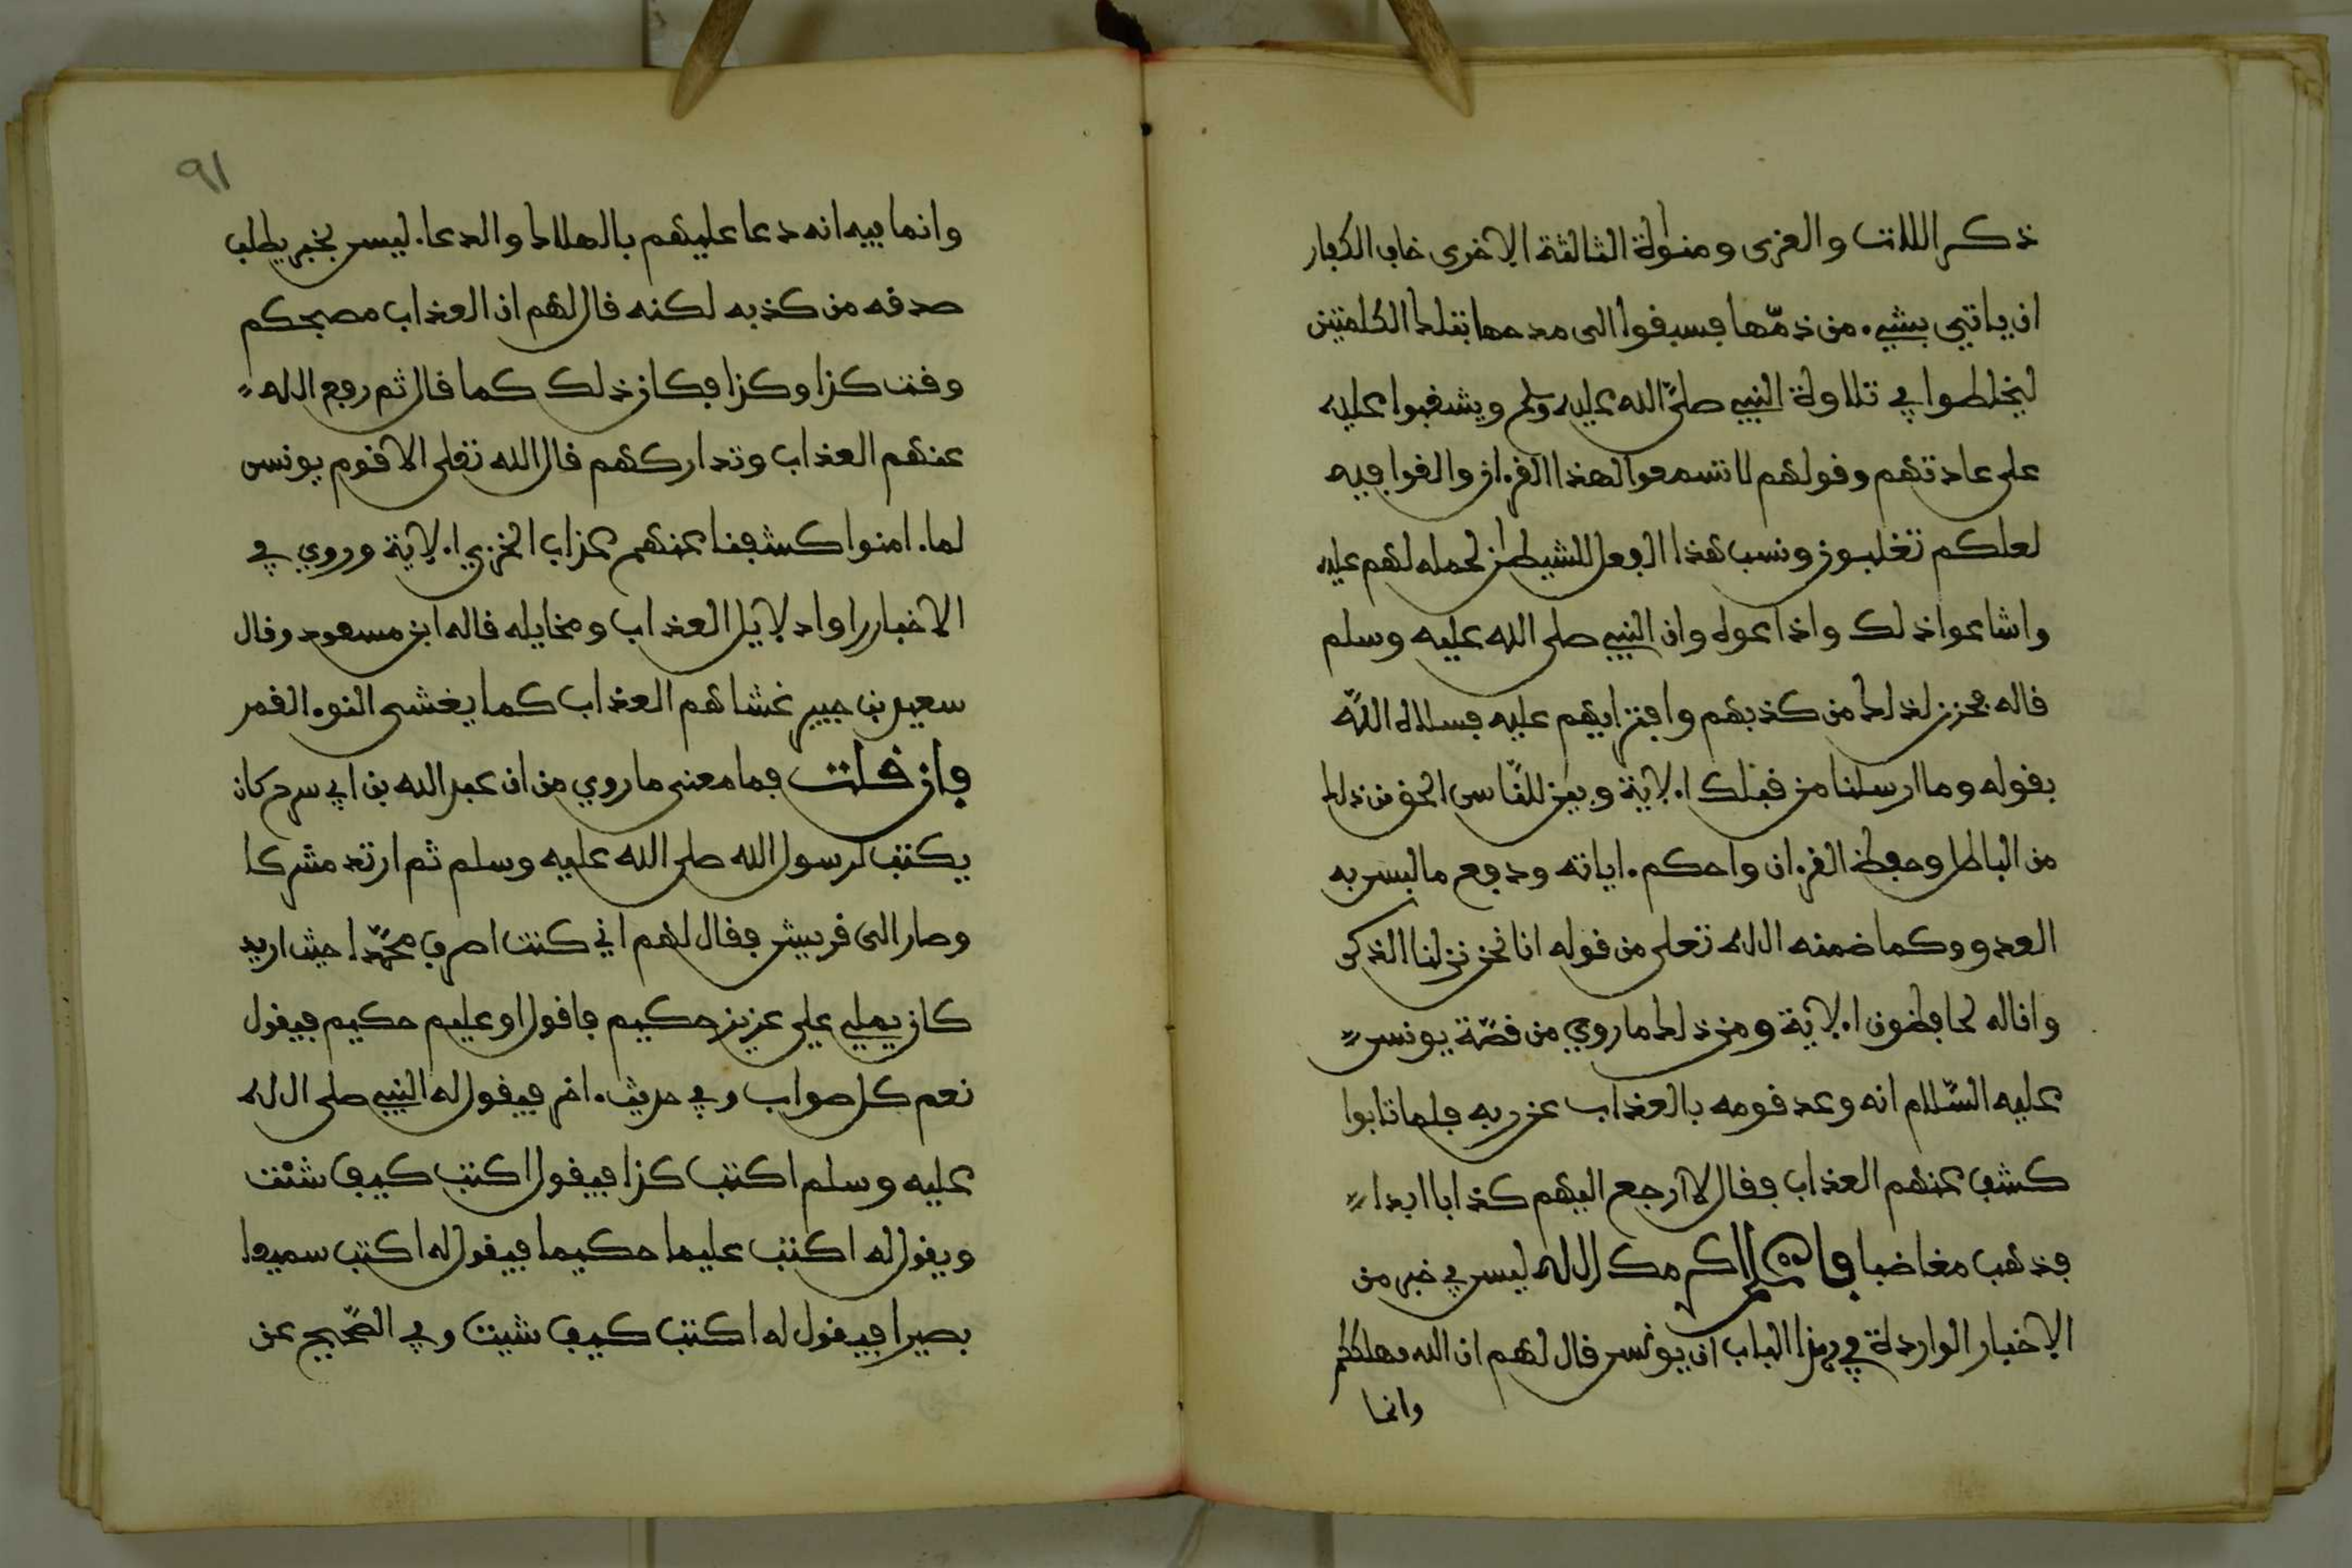 ذكر اللات والعزى ومنوة الثالثة الاخرى خاف الكفار
ان ياتي بشيء من ذمها فسبقوا الى مدحها بتلك الكلمتين
ليخلطوا في تلاوة النبي صلى الله عليه وسلم ويشغبوا عليه
على عادتهم وقولهم لا تسمعوا لهذا القرءان والغوا فيه
لعلكم تغلبون ونسب هذا الفعل للشيطان لحمله لهم عليه
واشاعوا ذلك واذاعوه وان النبي صلى الله عليه وسلم
قاله فحزن لذلك من كذبهم وافترايهم عليه فسلاه الله
بقوله وما ارسلنا من قبلك الاية وبين للناس الحق من ذلك
من الباطل وحفظ القرءان واحكم ءاياته ودفع ما لبس به
العدو وكما ضمنه الله تعلى من قوله انا نحن نزلنا الذكر
وانا له لحافظون الاية ومن ذلك ما روي من قصة يونس
عليه السلام انه وعد قومه بالعذاب عن ربه فلما تابوا
كشف عنهم العذاب فقال لا ارجع اليهم كذابا ابدا
فذهب مغاضبا فاعلم اكرمك الله ليس في خبر من
الاخبار الواردة في هذا الباب ان يونس قال لهم ان الله مهلككم
وانما
٩١
وانما فيه انه دعا عليهم بالهلاك والدعاء ليس بخبر يطلب
صدقه من كذبه لكنه قال لهم ان العذاب مصبحكم
وقت كذا وكذا فكان ذلك كما قال ثم رفع الله
عنهم العذاب وتداركهم قال الله تعلى الا قوم يونس
لما ءامنوا كشفنا عنهم عذاب الخزي الاية وروي في
الاخبار راوا دلايل العذاب ومخايله قاله ابن مسعود وقال
سعيد بن جبير غشاهم العذاب كما يغشى الثوب القبر
فان قلت فما معنى ما روي من ان عبد الله بن ابي سرح كان
يكتب لرسول الله صلى الله عليه وسلم ثم ارتد مشركا
وصار الى قريش فقال لهم اني كنت اصرف محمدا حيث اريد
كان يملي علي عزيز حكيم فاقول او عليم حكيم فيقول
نعم كل صواب وفي حديث ءاخر فيقول له النبي صلى الله
عليه وسلم اكتب كذا فيقول اكتب كيف شئت
ويقول له اكتب عليما حكيما فيقول له اكتب سميعا
بصيرا فيقول له اكتب كيف شيت وفي الصحيح عن